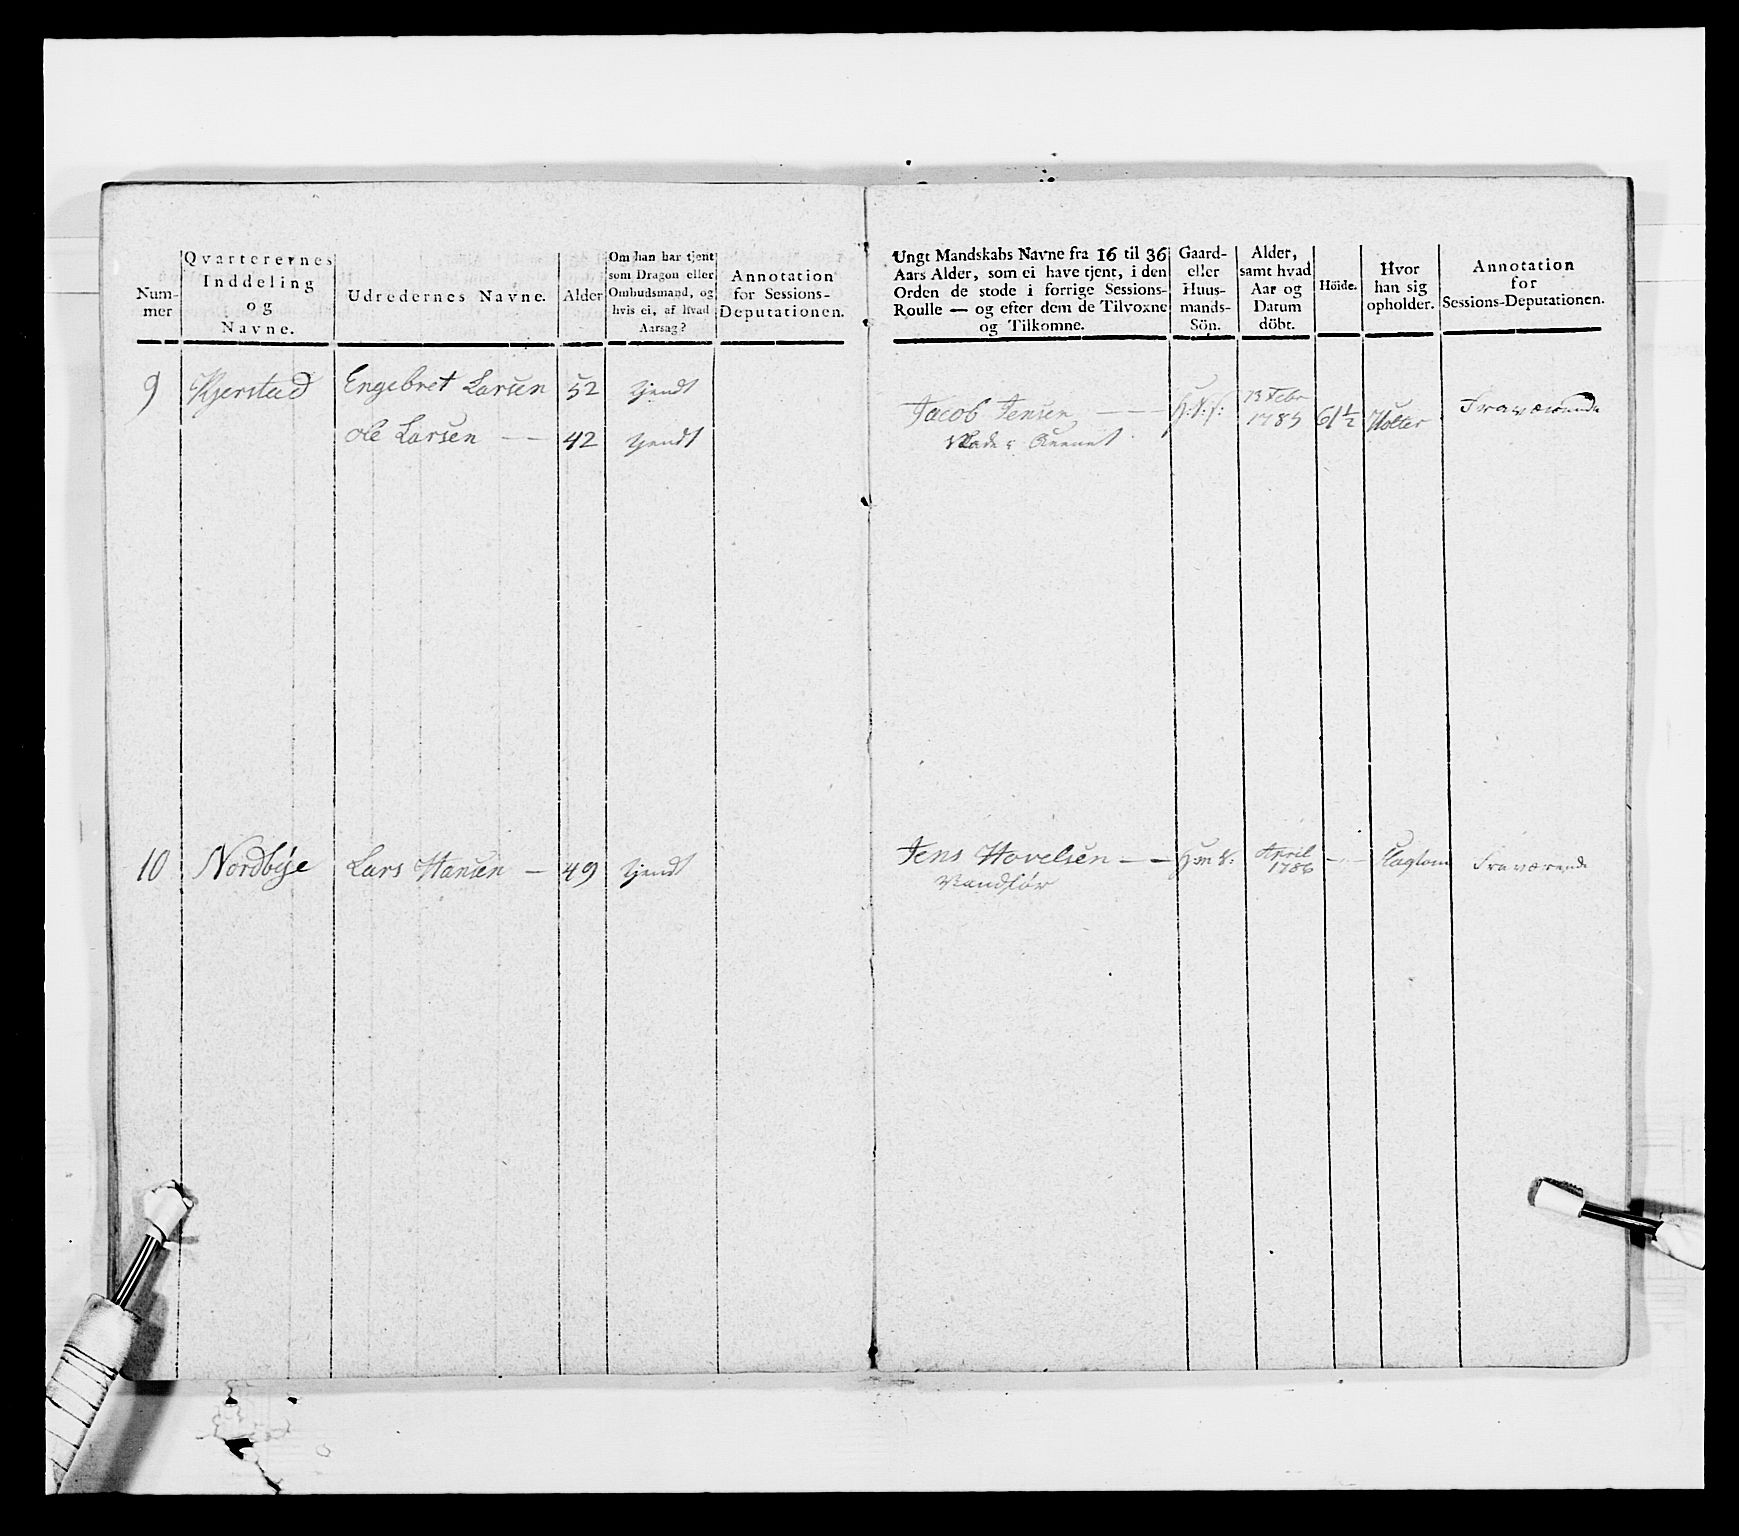 Num-
mer
Qvarterernes
Inddeling
og
Navne.
Udredernes Navne.
Alder
Om han har tjent
som Dragon eller
Ombudsmand, og
hvis ei, af hvad
Aarsag?
Annotation
for Sessions-
Deputationen.
9 Kjerstad Engebret Larsen 52 tjendt
Ole Larsen — — 42 tjendt
10 Nordbye Lars Hansen — 49 tjendt
Ungt Mandskabs Navne fra 16 til 36
Aars Alder, som ei have tjent, i den
Orden de stode i forrige Sessions-
Roulle — og efter dem de Tilvoxne
og Tilkomne.
Gaard-
eller
Huus-
mands-
Sön.
Alder,
samt hvad
Aar og
Datum
döbt.
Höide.
Hvor
han sig
opholder.
Annotation
for
Sessions-Deputationen.
13 Febr
Jacob Jensen — — — 1785 61 1/2 Holter Fraværende
April
Jens Hovelsen — — 1786 — Fraværende
Vandför